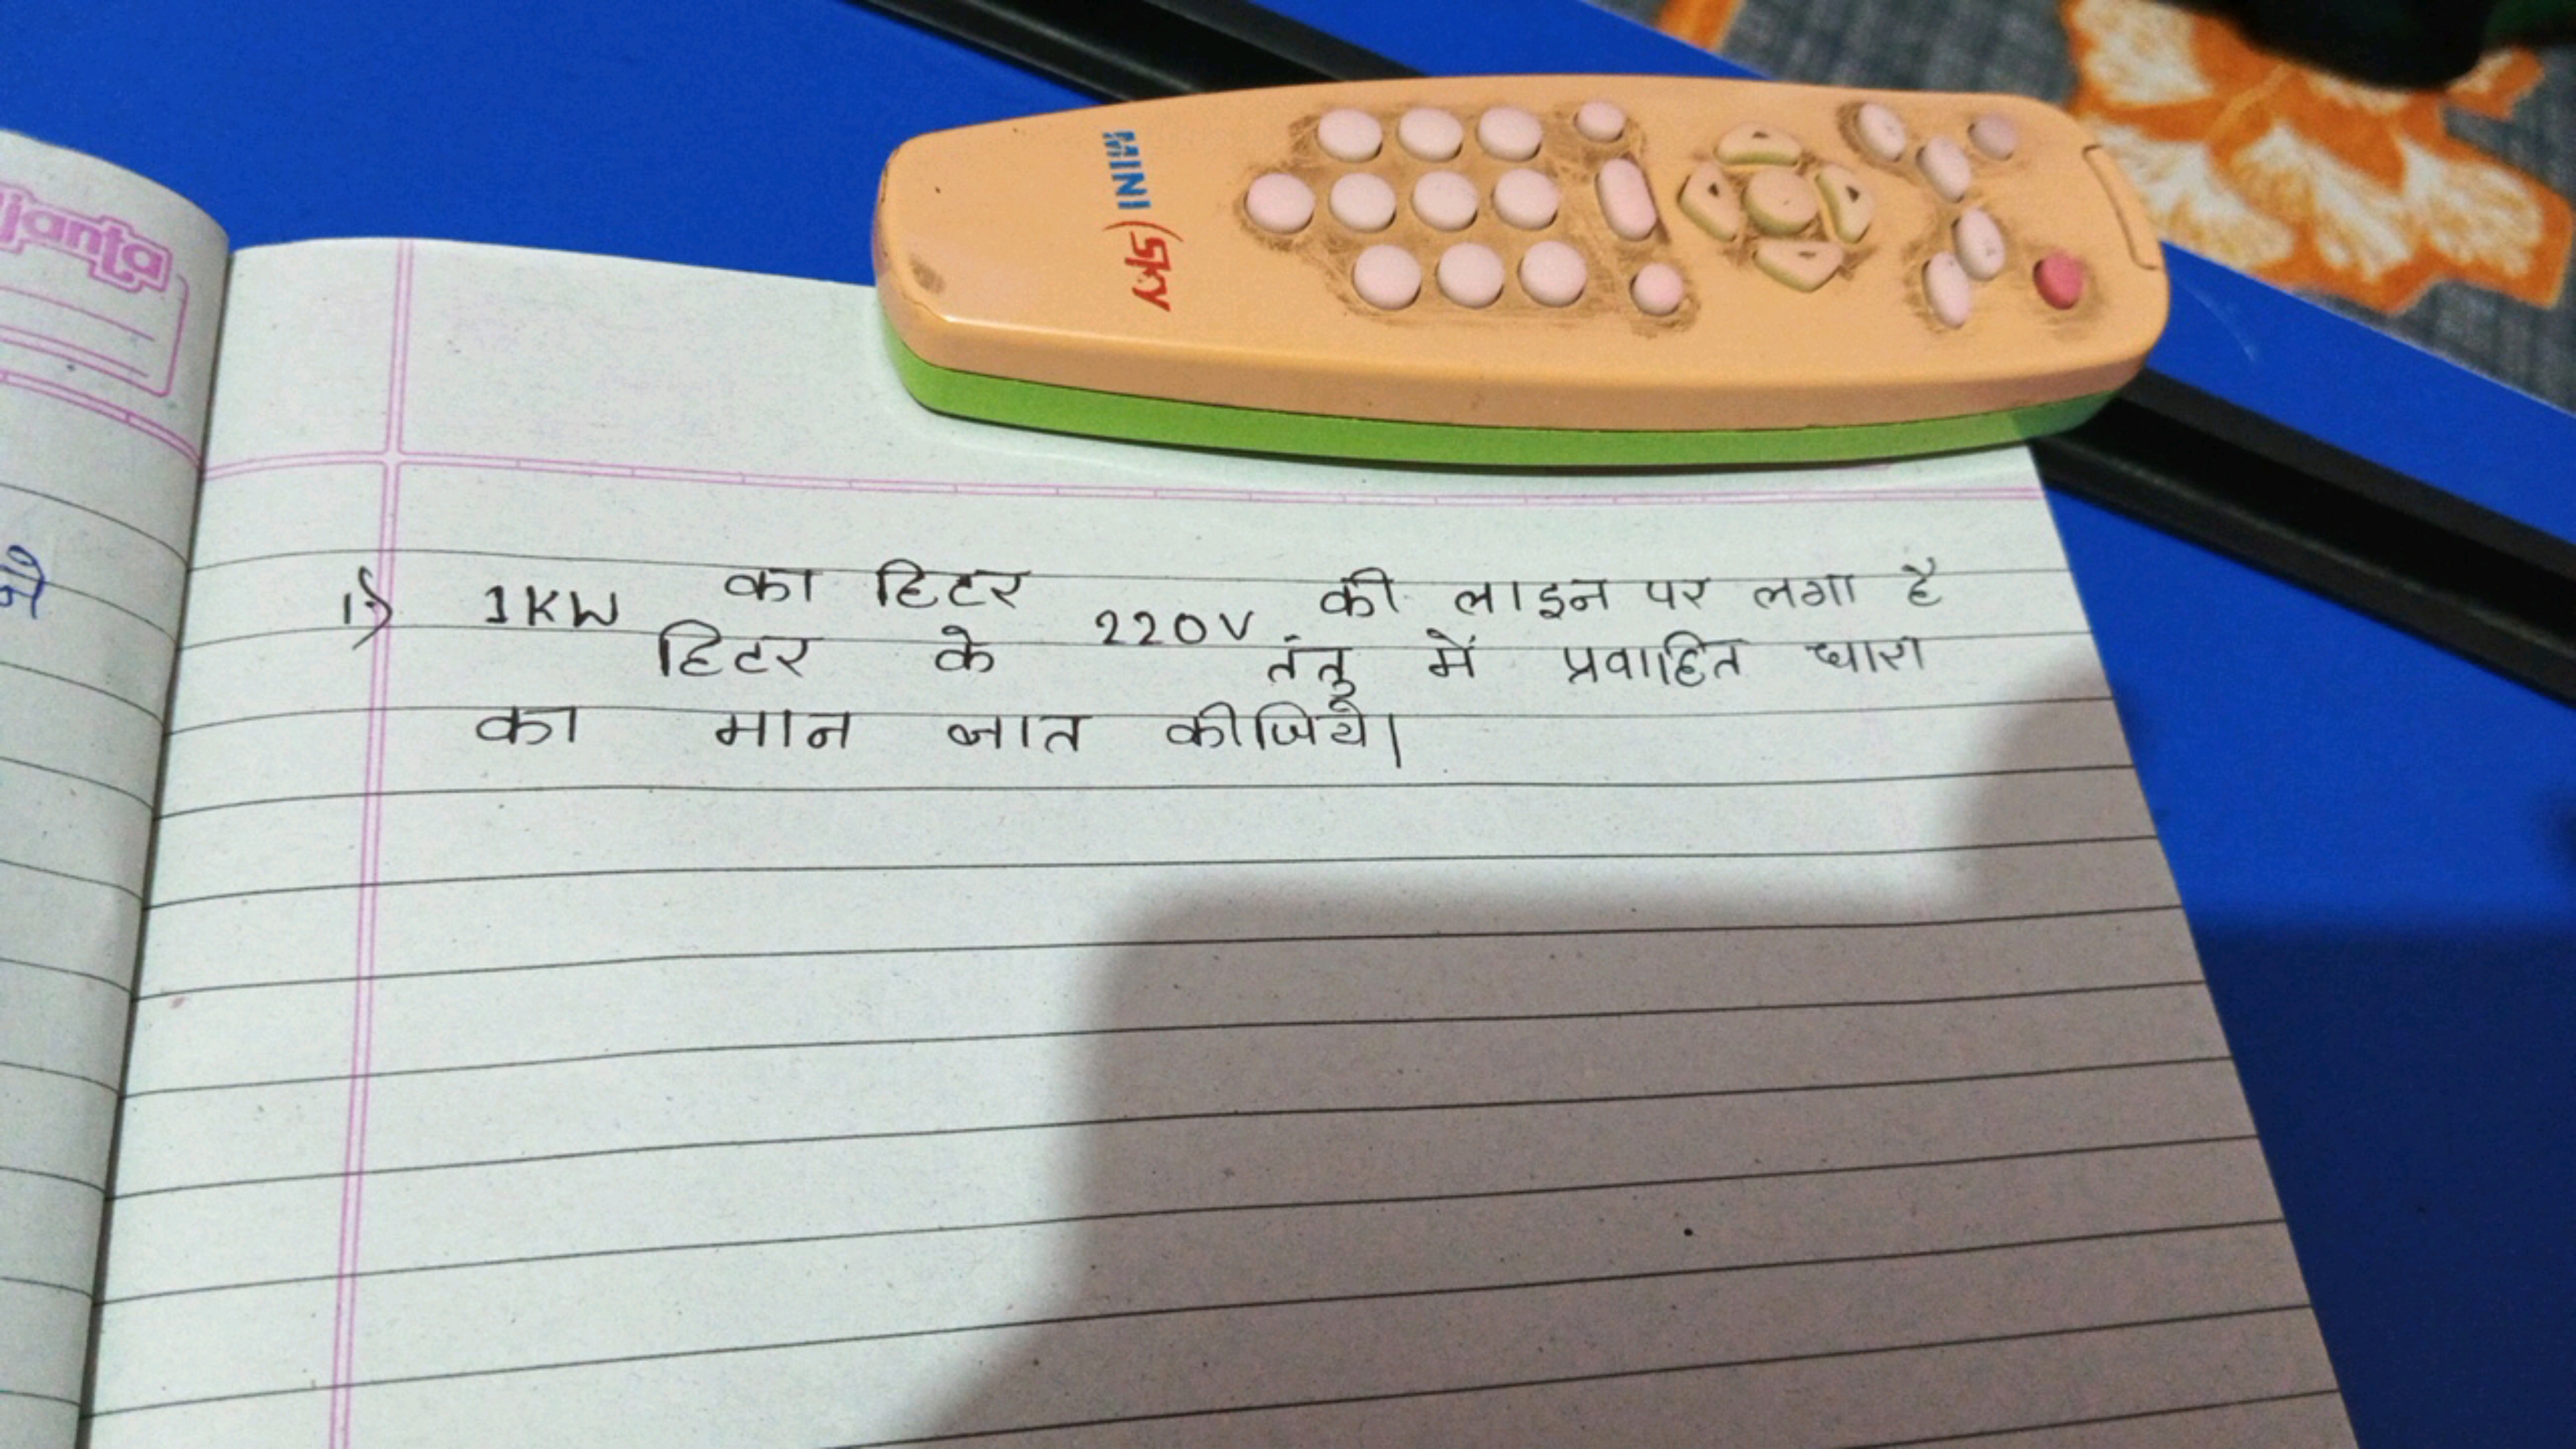 ajanta
SKY MINI
1) 1KW का हिटर 220V की लाइन पर लगा है
हिटर के तंतु में प्रवाहित धारा
का मान ज्ञात कीजिये।